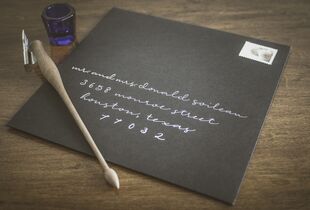 mr. and mrs. donald soileau
3658 monroe street
houston, texas
77032